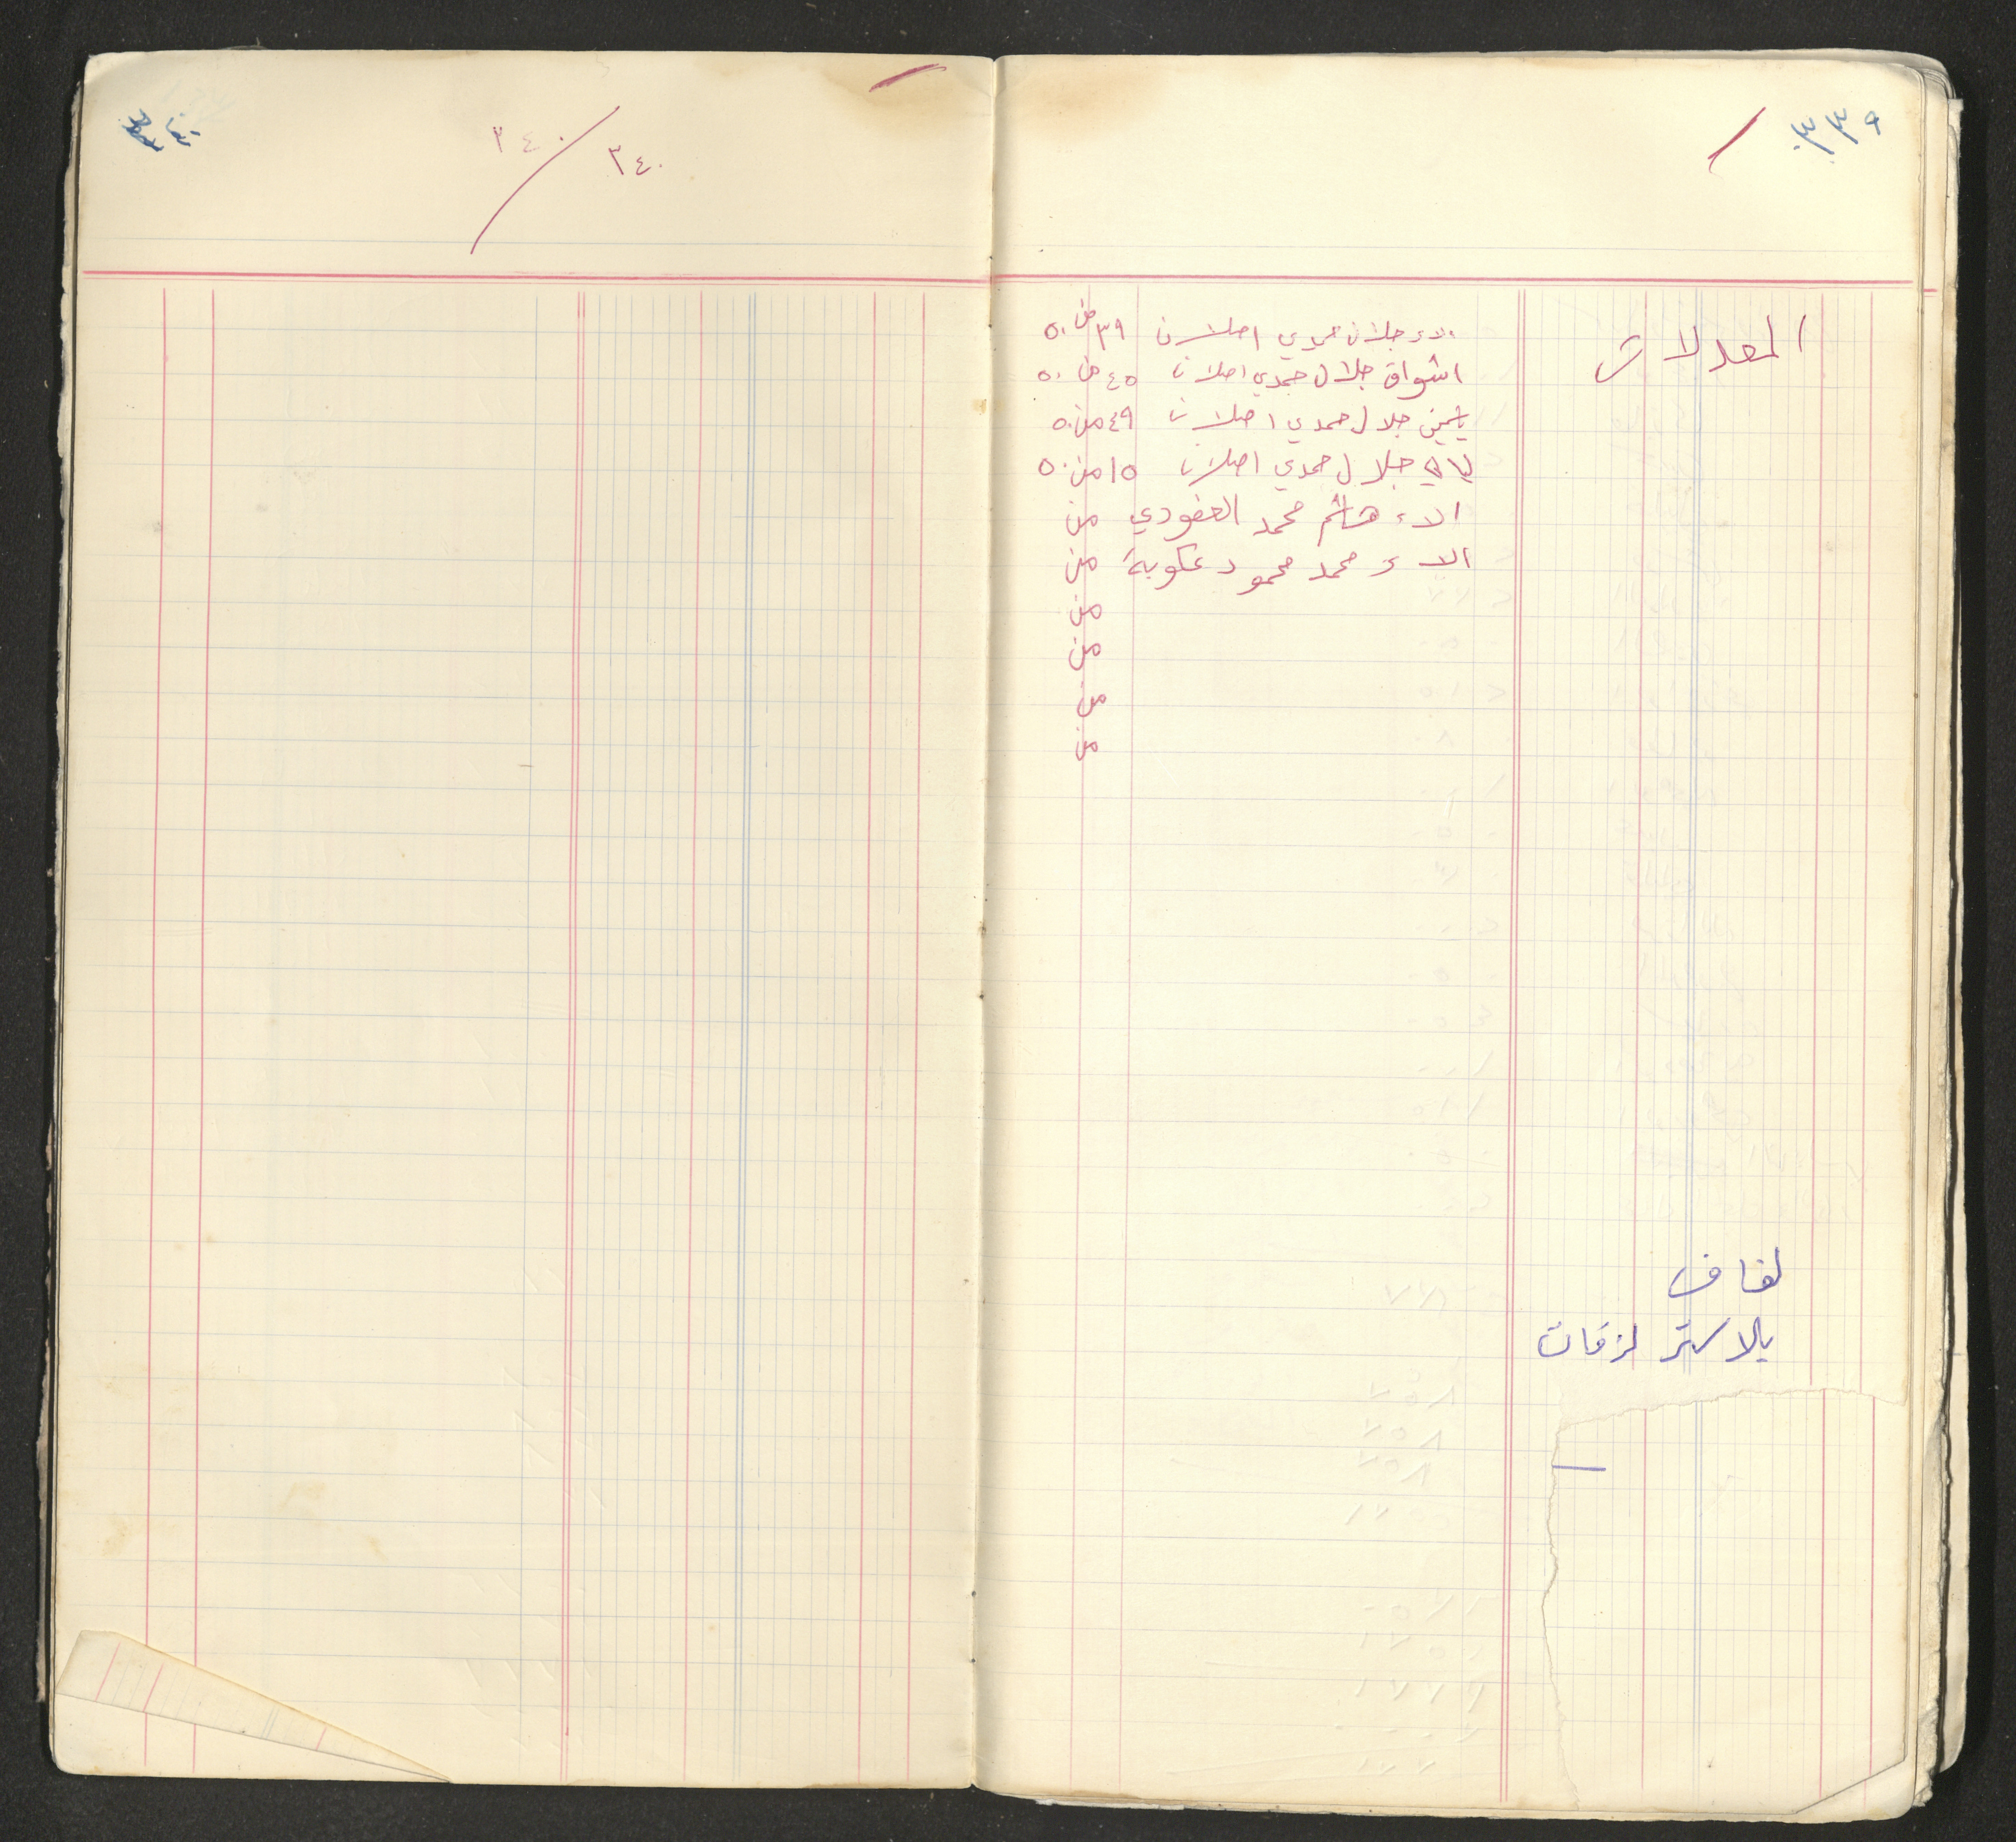 ٣٣٩
المعدلات
الاء جلال حمدي اصلان ٣٩ من ٥٠
اشواق جلال حمدي اصلان ٤٥ من ٥٠
ياسمين جلال حمدي اصلان ٤٩ من ٥٠
ليالي جلال حمدي اصلان ١٥ من ٥٠
الاء هاشم محمد العفودي من
الاء محمد محمود عكوبة من
من
من
من
من
لفاف
بلاستر لزقات
٣٤٠ / ٣٤٠